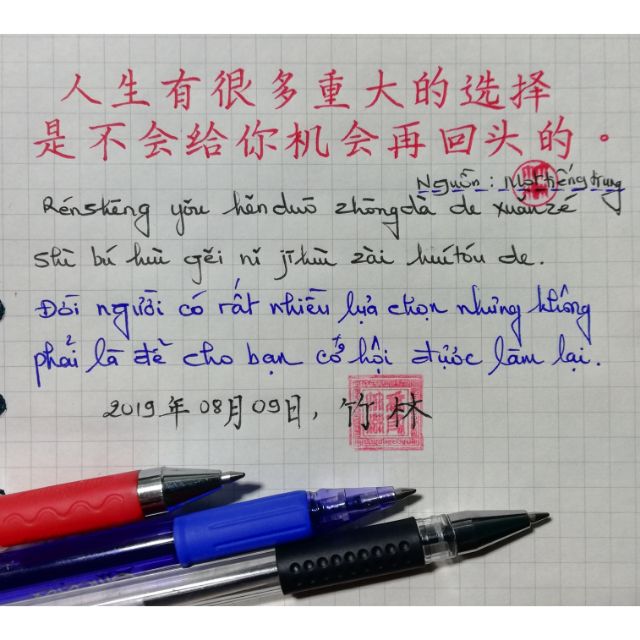 人生有很多重大的选择
是不会给你机会再回头的。
Nguồn: Mọt tiếng trung
Rénshēng yǒu hěnduō zhòngdà de xuǎnzé
shì bú huì gěi nǐ jīhuì zài huítóu de.
Đời người có rất nhiều lựa chọn nhưng không
phải là để cho bạn cơ hội được làm lại.
2019年08月09日, 竹林